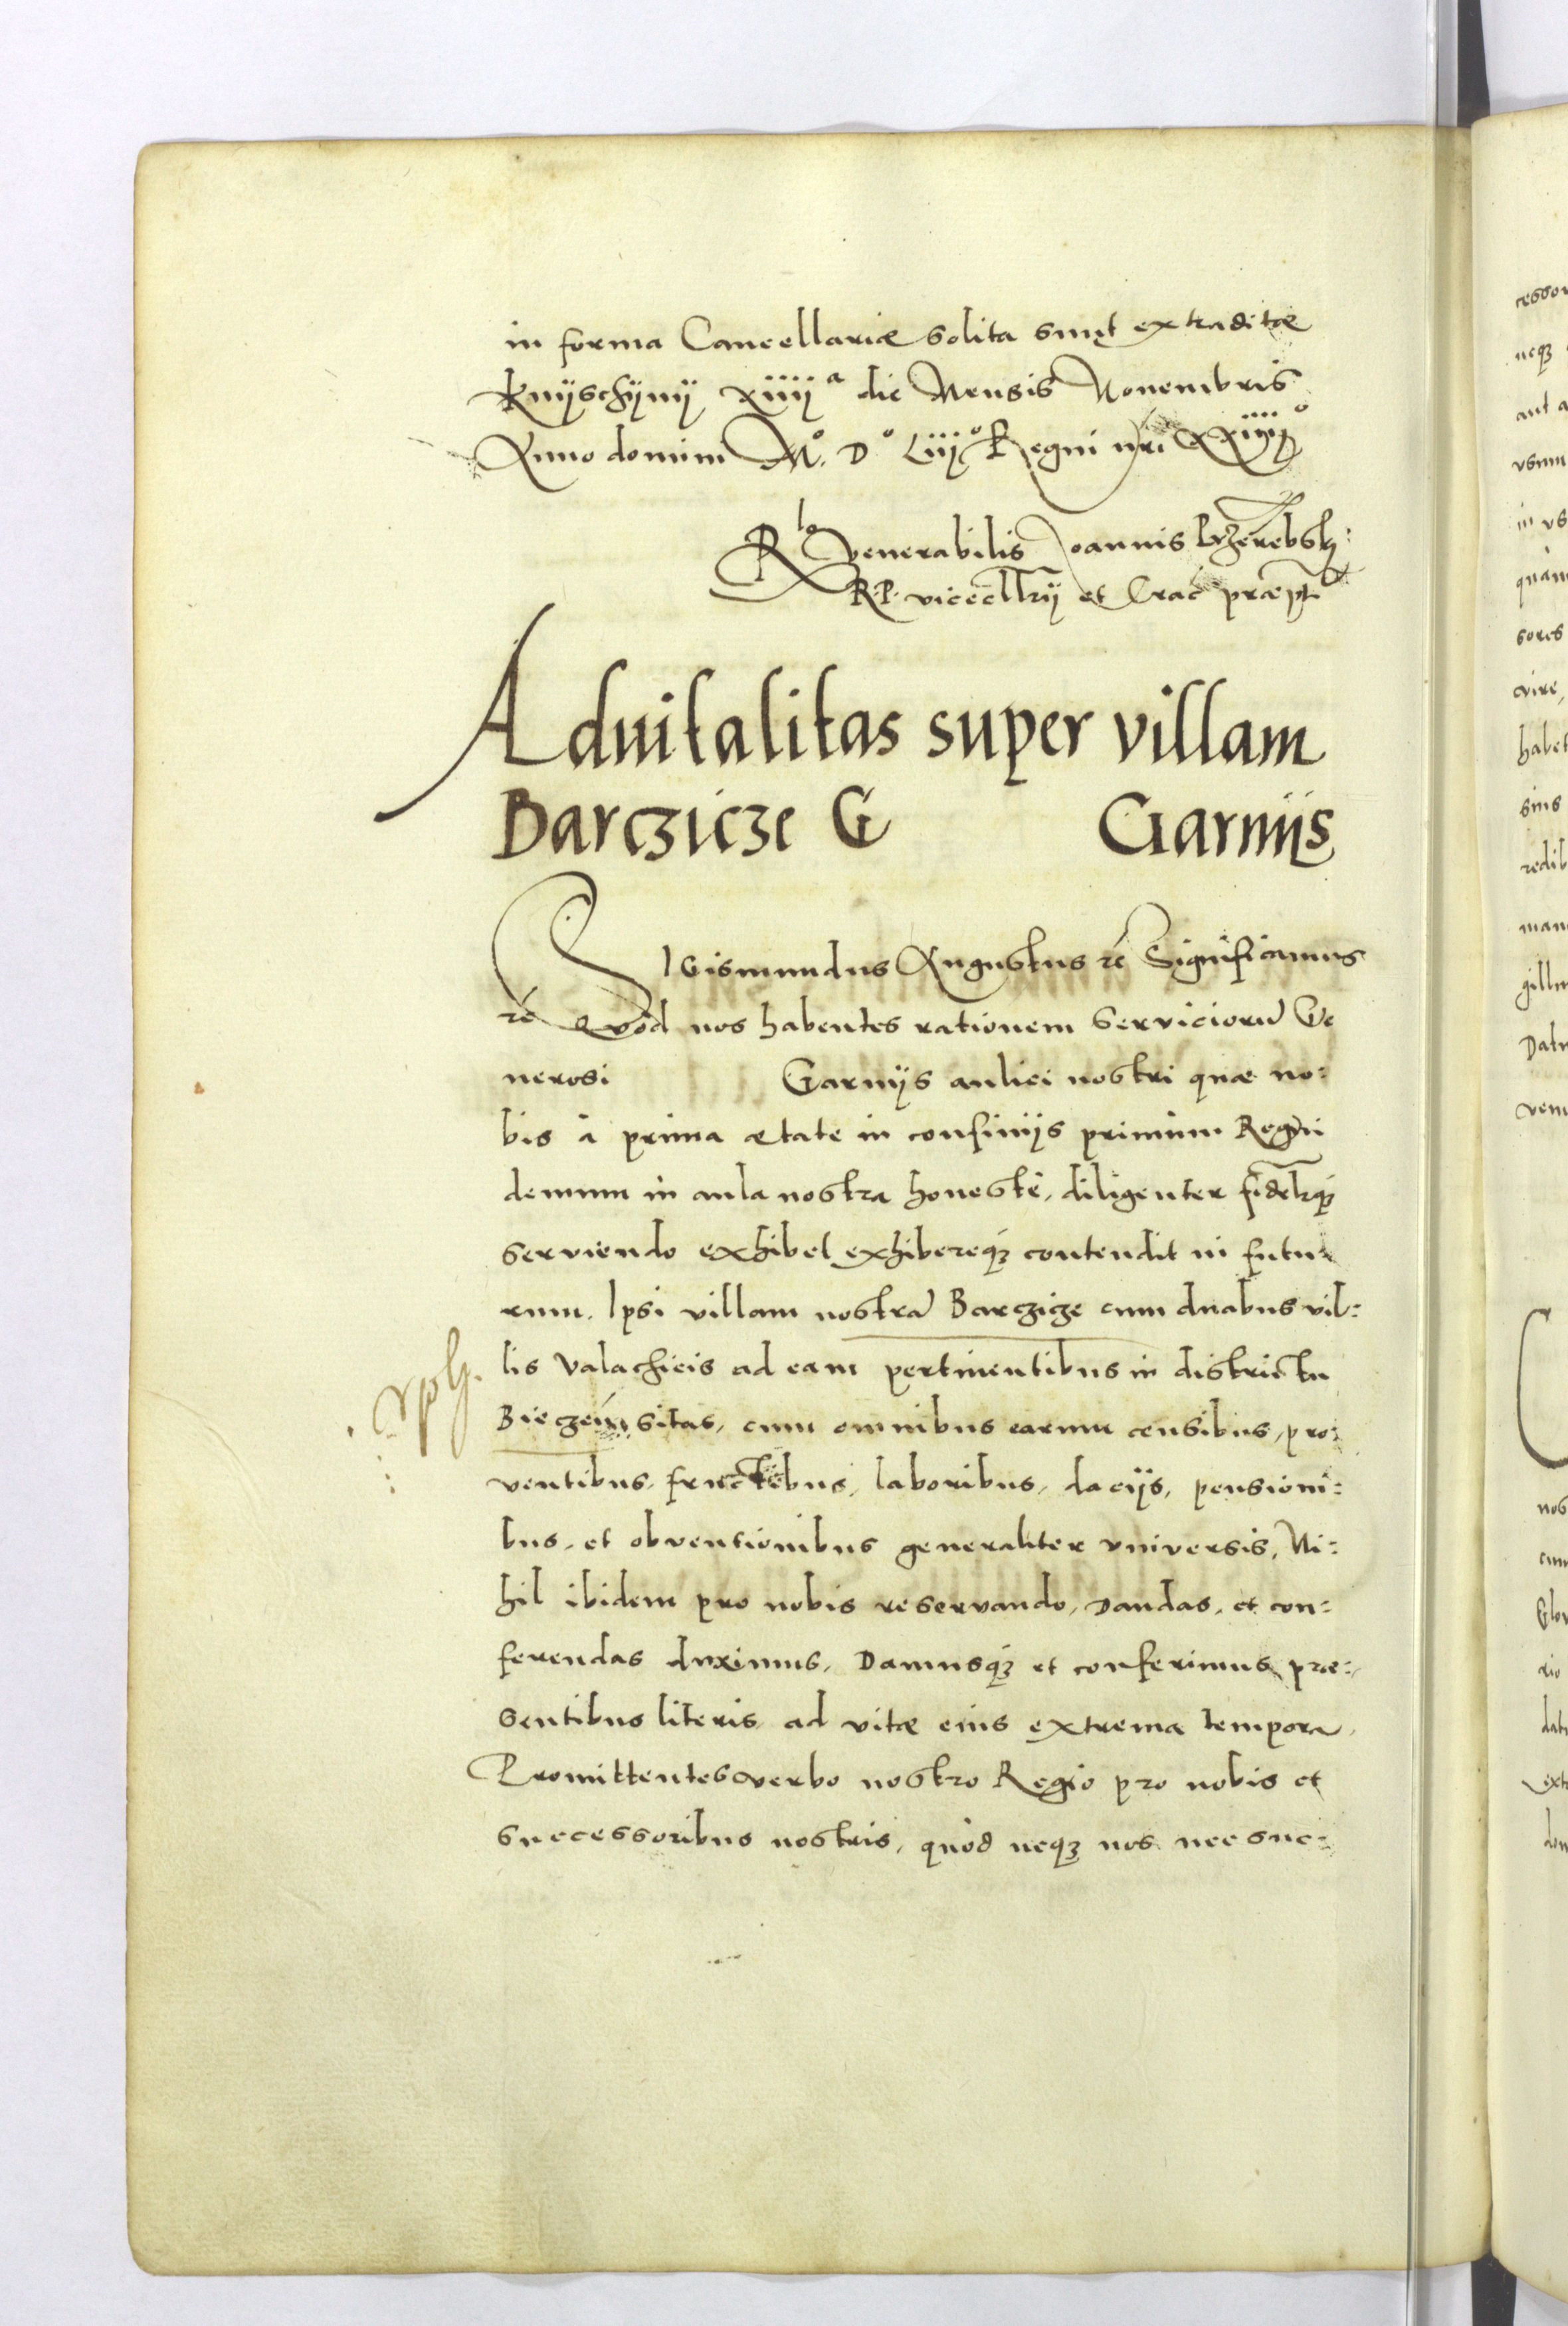 in forma Cancellariæ solita sunt extraditæ
Knÿschÿnÿ xiiij a die Mensis Nouembris
Anno domini Mº. Dº Liijº Regni nri xxiiijº
Rlo venerabilis Joannis Przerebsky:
R. P. vicecllrÿ et Crac præpti
Aduitalitas super villam
Barczicze G Garnijs
SIGismundus Augustus rc Significamus
rc Quod nos habentes rationem serviciorũ Ge
nerosi Garnijs aulici nostri quæ no:
bis à prima ætate in confinijs primùm Regni
demum in aula nostra honestè, diligenter fidelitqꝫ
serviendo exhibet exhibereqꝫ contendit in futu:
rum. Ipsi villam nostrã Barczicze cum duabus vil:
lis Valachicis ad eam pertinentibus in districtu
Bieczeñ, sitas, cum omnibus earum censibus, pro:
ventibus, fructibus, laboribus, dacijs, pensioni:
bus, et obventionibus generaliter vniversis, Ni:
hil ibidem pro nobis reservando, dandas, et con:
ferendas duximus, Damusqꝫ et conferimus præ:
sentibus literis ad vitæ eius extrema tempora,
Promittentes verbo nostro Regio pro nobis et
successoribus nostris, quòd neqꝫ nos nec suc: